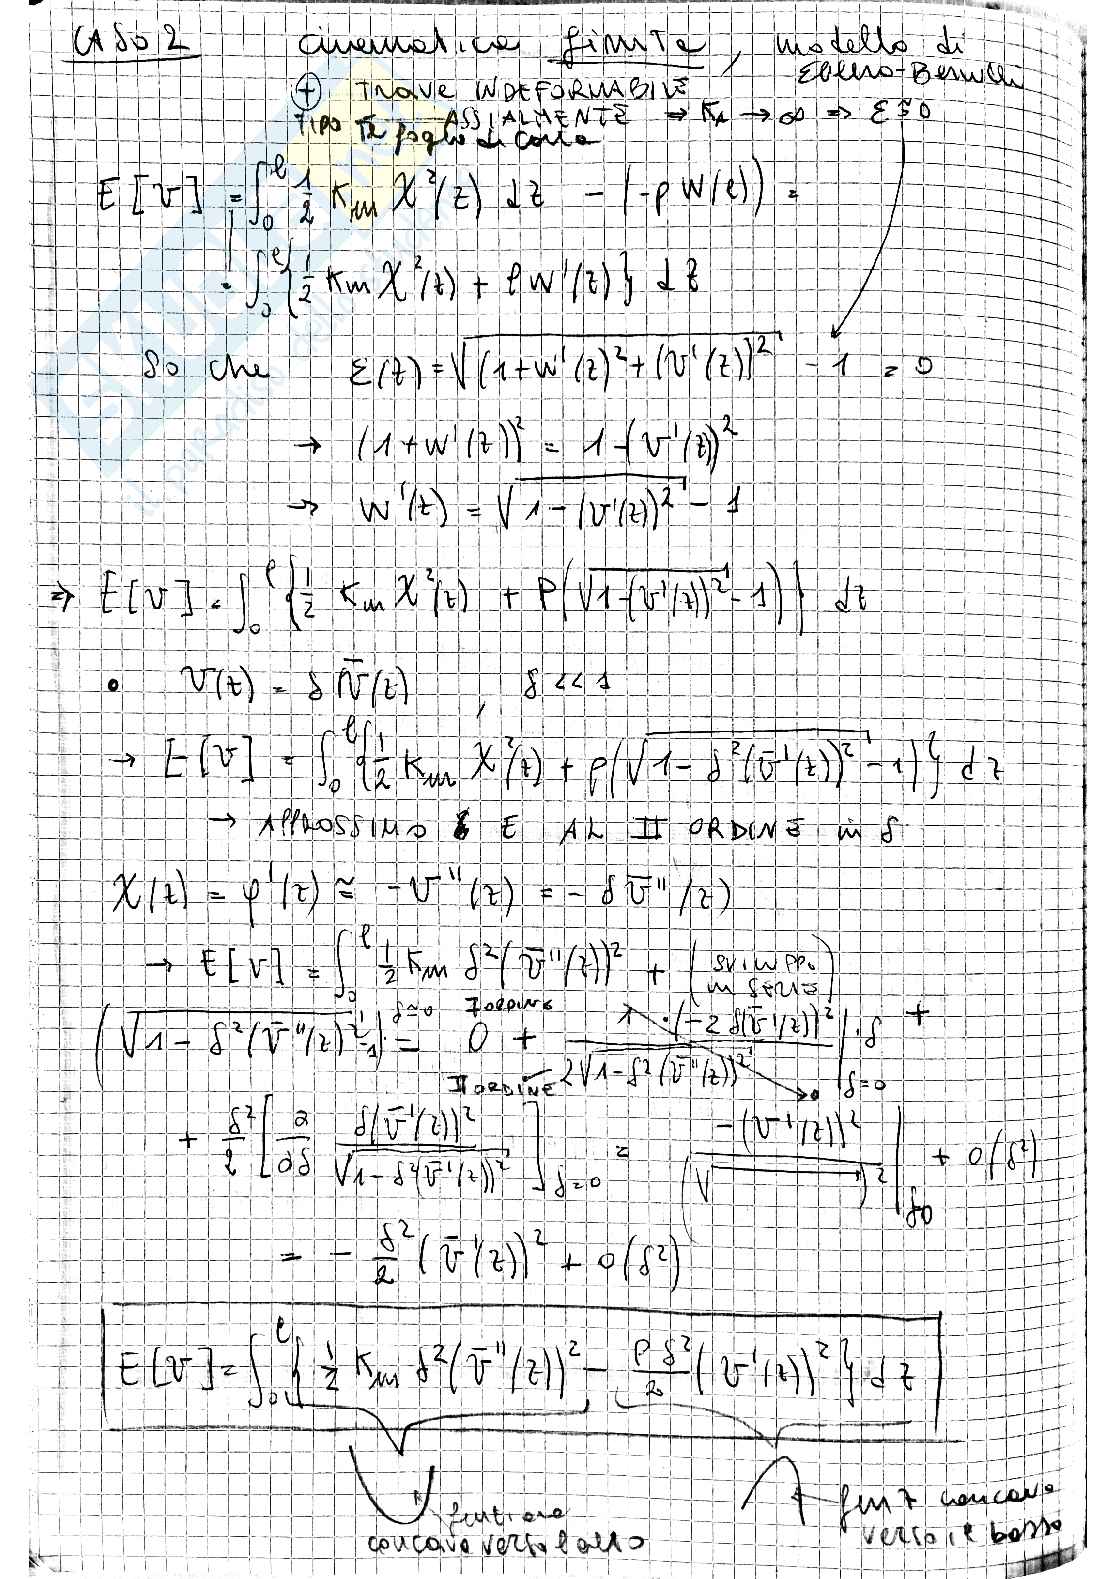 CASO 2 cinematica finita, modello di
Eulero-Bernulli
⊕ TRAVE INDEFORMABILE
ASSIALMENTE ⇒ K_A → ∞ ⇒ ε ≅ 0
TIPO foglio di carta
E[v] = ∫_0^l 1/2 K_m χ²(z) dz - (-p w(l)) =
= ∫_0^l {1/2 K_m χ²(z) + p w'(z)} dz
So che ε(z) = √((1+w'(z)² + (v'(z))²) - 1 = 0
→ (1+w'(z))² = 1-(v'(z))²
→ w'(z) = √(1-(v'(z))²) - 1
⇒ E[v] = ∫_0^l {1/2 K_m χ²(z) + P(√(1-(v'(z))²) - 1)} dz
• v(z) = δ v̄(z), δ << 1
→ E[v] = ∫_0^l {1/2 K_m χ²(z) + p(√(1-δ²(v̄'(z))²) - 1)} dz
→ APPROSSIMO E AL II ORDINE in δ
χ(z) = φ'(z) ≅ -v''(z) = -δ v̄''(z)
→ E[v] = ∫_0^l 1/2 K_m δ²(v̄''(z))² + (SVILUPPO IN SERIE)
(√(1-δ²(v̄''(z))²) - 1) = δ≈0 0 + I ORDINE 1·(-2δ(v̄'(z))² / 2√(1-δ²(v̄''(z))²) |δ=0 · δ + → 0
II ORDINE
+ δ²/2 [∂/∂δ - δ(v̄'(z))² / √(1-δ²(v̄'(z))²)]δ=0 = -(v̄'(z))² / (√ )² |δ=0 + o(δ²)
= - δ²/2 (v̄'(z))² + o(δ²)
E[v] = ∫_0^l {1/2 K_m δ²(v̄''(z))² - P δ²/2 (v̄'(z))²} dz
funzione
concava verso l'alto
funz concava
verso il basso